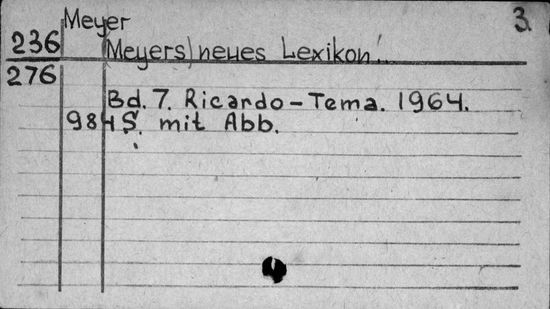 Meyer
3.
236 Meyers neues Lexikon...
276
Bd. 7. Ricardo-Tema. 1964.
984 S. mit Abb.